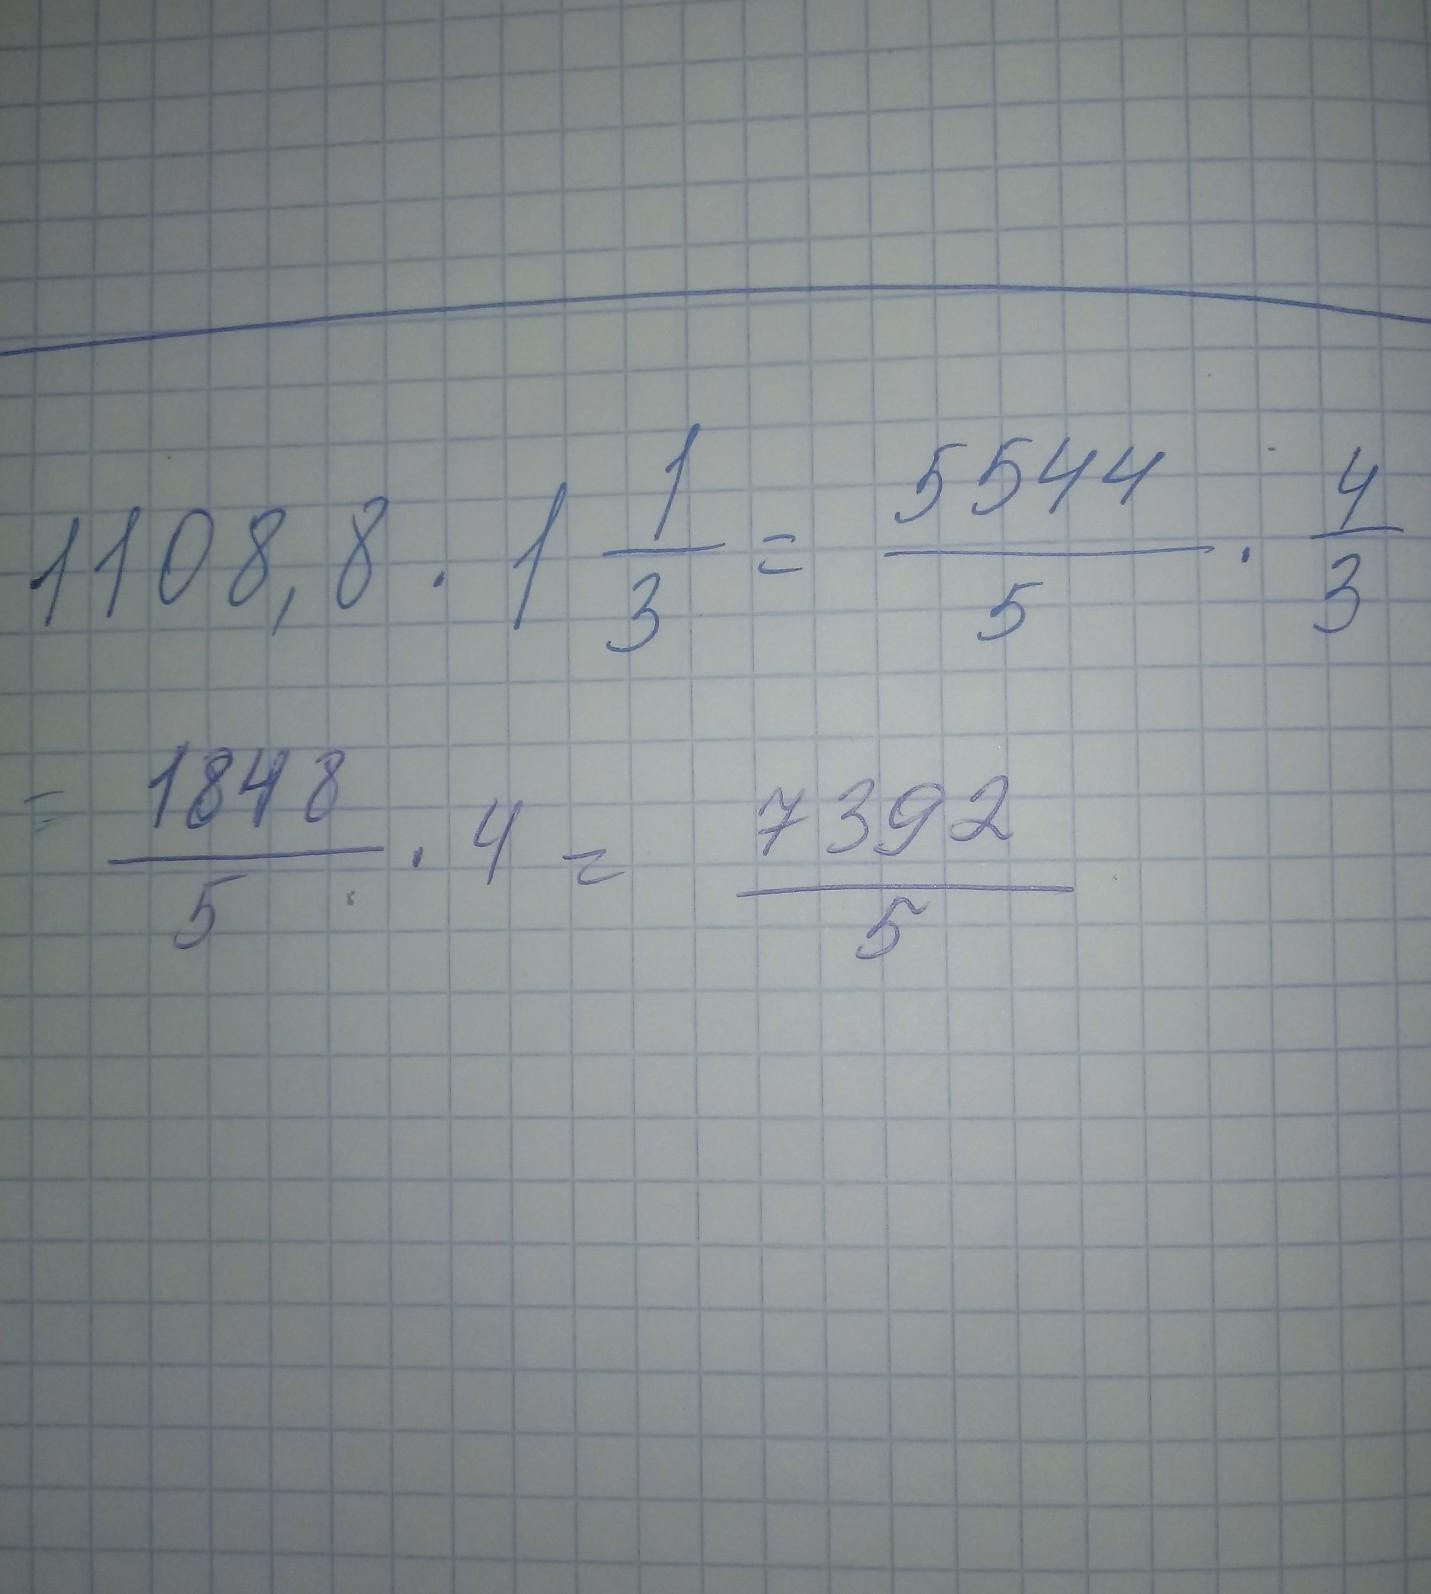 1108,8 · 1 1/3 = 5544/5 · 4/3
= 1848/5 · 4 = 7392/5